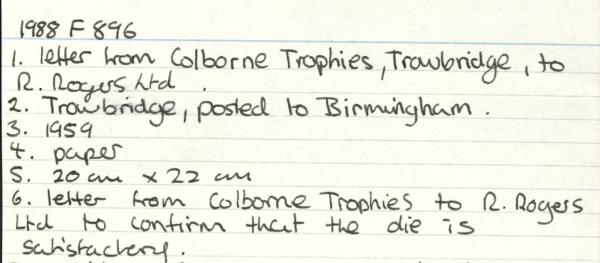 1988 F 896
1. letter from Colborne Trophies, Trowbridge, to
R. Rogers Ltd.
2. Trowbridge, posted to Birmingham.
3. 1959
4. paper
5. 20 cm x 22 cm
6. letter from Colborne Trophies to R. Rogers
Ltd to confirm that the die is
satisfactory.